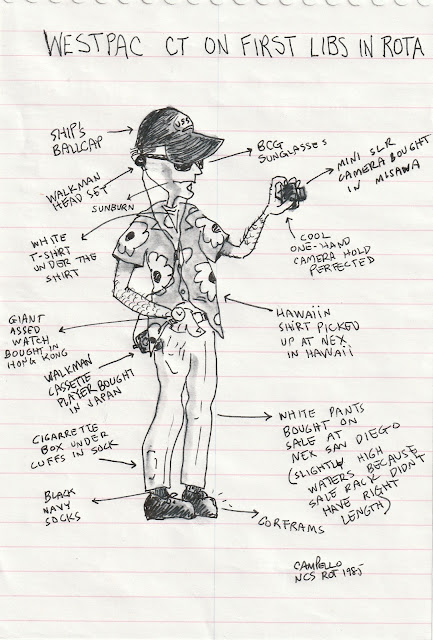 WESTPAC CT ON FIRST LIBS IN ROTA
SHIP'S
BALLCAP
USS
BCG
SUNGLASSES
MINI SLR
CAMERA BOUGHT
IN MISAWA
WALKMAN
HEAD SET
SUNBURN
COOL
ONE-HAND
CAMERA HOLD
PERFECTED
WHITE
T-SHIRT
UNDER THE
SHIRT
HAWAIIN
SHIRT PICKED
UP AT NEX
IN HAWAII
GIANT
ASSED
WATCH
BOUGHT IN
HONG KONG
WALKMAN
CASSETTE
PLAYER BOUGHT
IN JAPAN
WHITE PANTS
BOUGHT ON
SALE AT
NEX SAN DIEGO
(SLIGHTLY HIGH
WATERS BECAUSE
SALE RACK DIDN'T
HAVE RIGHT
LENGTH)
CIGARRETTE
BOX UNDER
CUFFS IN SOCK
BLACK
NAVY
SOCKS
CORFRAMS
CAMPELLO
NCS ROT 1985